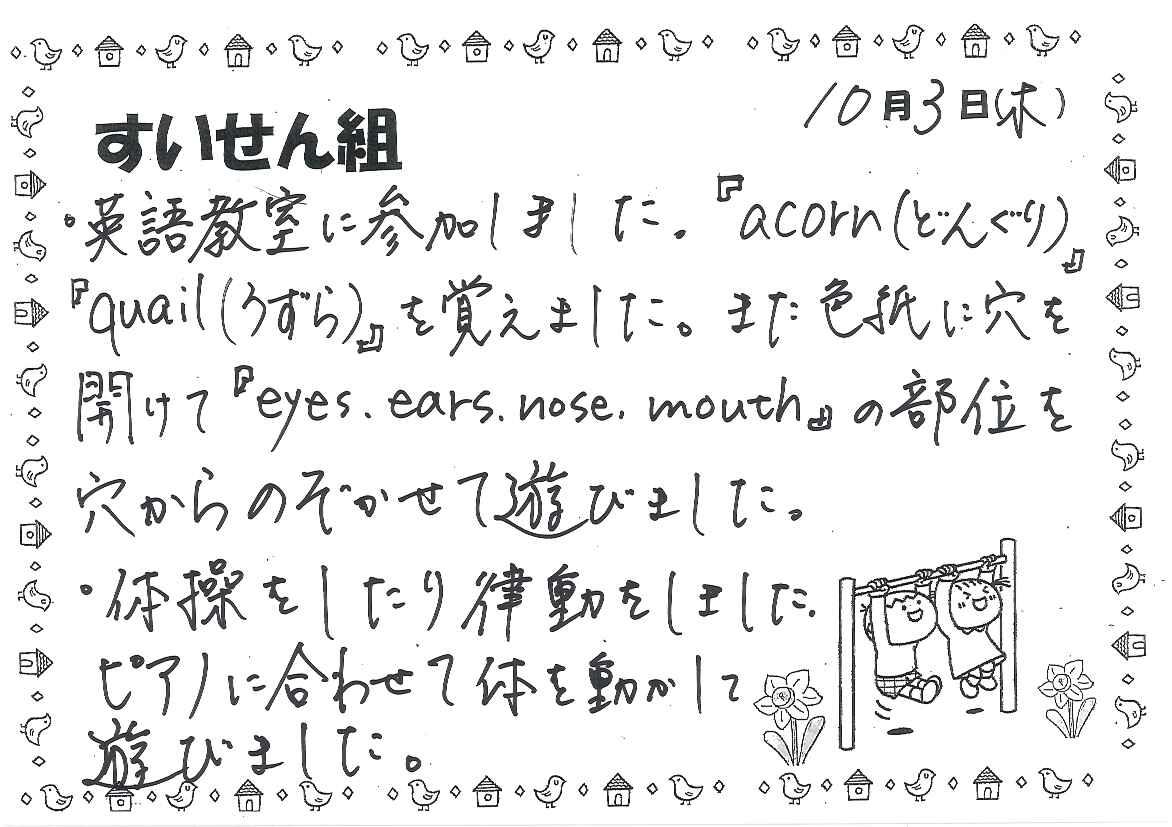 10月3日(木)
すいせん組
・英語教室に参加しました。『acorn(どんぐり)』
『quail(うずら)』を覚えました。また色紙に穴を
開けて『eyes.ears.nose.mouth』の部位を
穴からのぞかせて遊びました。
・体操をしたり律動をしました.
ピアノに合わせて体を動かして
遊びました。